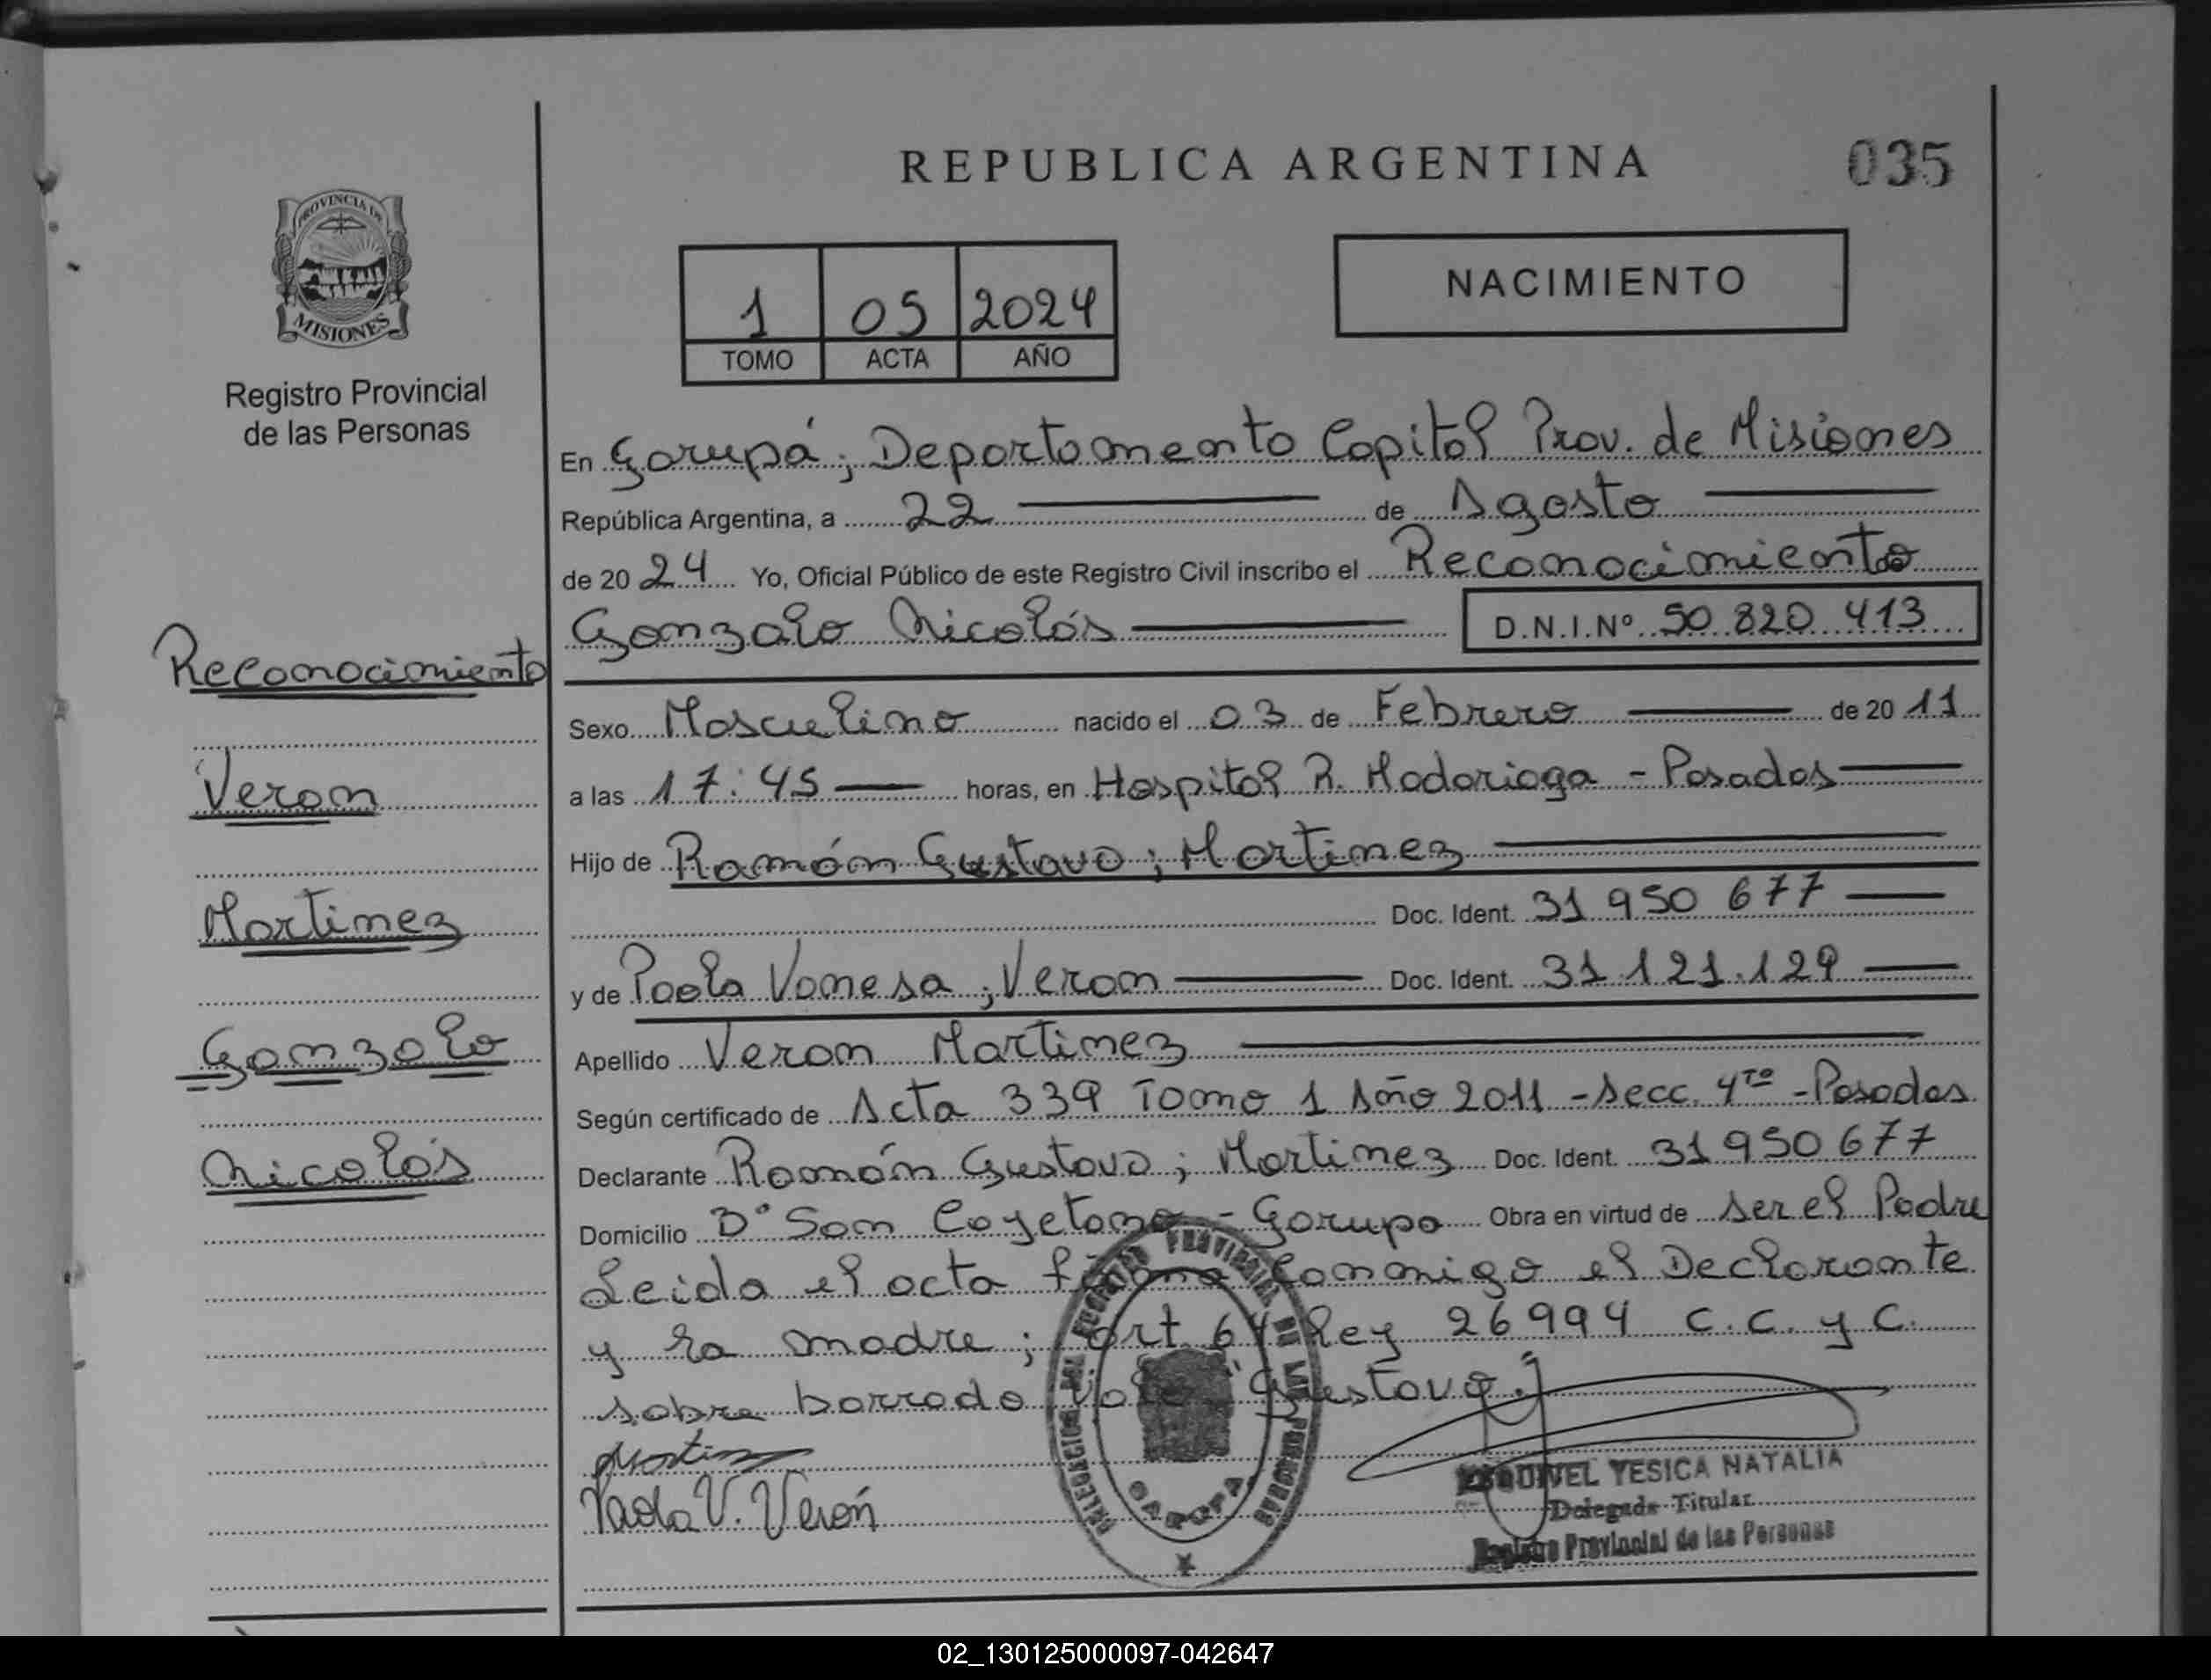 REPUBLICA ARGENTINA
035
PROVINCIA DE
MISIONES
Registro Provincial
de las Personas
1 05 2024
TOMO ACTA AÑO
NACIMIENTO
En Garupá; Departamento Capital Prov. de Misiones
República Argentina, a 22 de Agosto
de 2024 Yo, Oficial Público de este Registro Civil inscribo el Reconocimiento
Gonzalo Nicolás D.N.I.Nº 50 820 413
Reconocimiento
Veron
Martinez
Gonzalo
Nicolás
Sexo Masculino nacido el 03 de Febrero de 2011
a las 17:45 horas, en Hospital R. Madariaga - Posadas
Hijo de Ramón Gustavo; Martinez
Doc. Ident. 31 950 677
y de Paola Vanesa; Veron Doc. Ident. 31.121.129
Apellido Veron Martinez
Según certificado de Acta 339 Tomo 1 Año 2011 - Secc. 4ta - Posadas
Declarante Ramón Gustavo; Martinez Doc. Ident. 31 950 677
Domicilio B° San Cayetano - Garupa Obra en virtud de ser el Padre
Leida el acta firma conmigo el Declarante
y la madre; art. 64 Ley 26994 C.C. y C.
sobre borrado vale: Gustavo.
Paola V. Verón
DELEGACION DEL REGISTRO PROVINCIAL DE LAS PERSONAS
GARUPA
ESQUIVEL YESICA NATALIA
Delegada Titular
Registro Provincial de las Personas
02_130125000097-042647